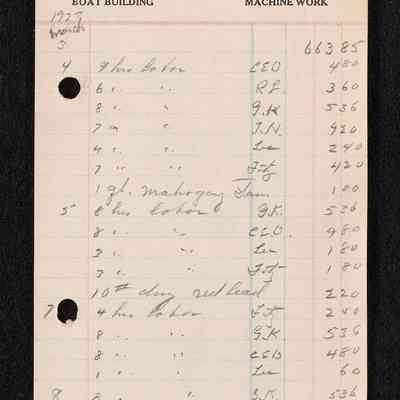 BOAT BUILDING MACHINE WORK
1927
March
3 663 85
4 9 hrs labor CEO 4 80
6 " " R.L. 3 60
8 " " G.K 5 36
7 " " T.N. 9 20
4 " " Les 2 40
7 " " 4 20
1 qt. mahogany 1 00
5 8 hrs labor G.K. 5 36
8 " " CEO. 9 80
3 " " Les 1 80
3 " " 1 80
10# dry red lead 2 20
7 4 hrs labor 2 40
8 " " G.K 5 36
8 " " CEO 4 80
1 " " Les 60
8 8 " " G.K. 5 36